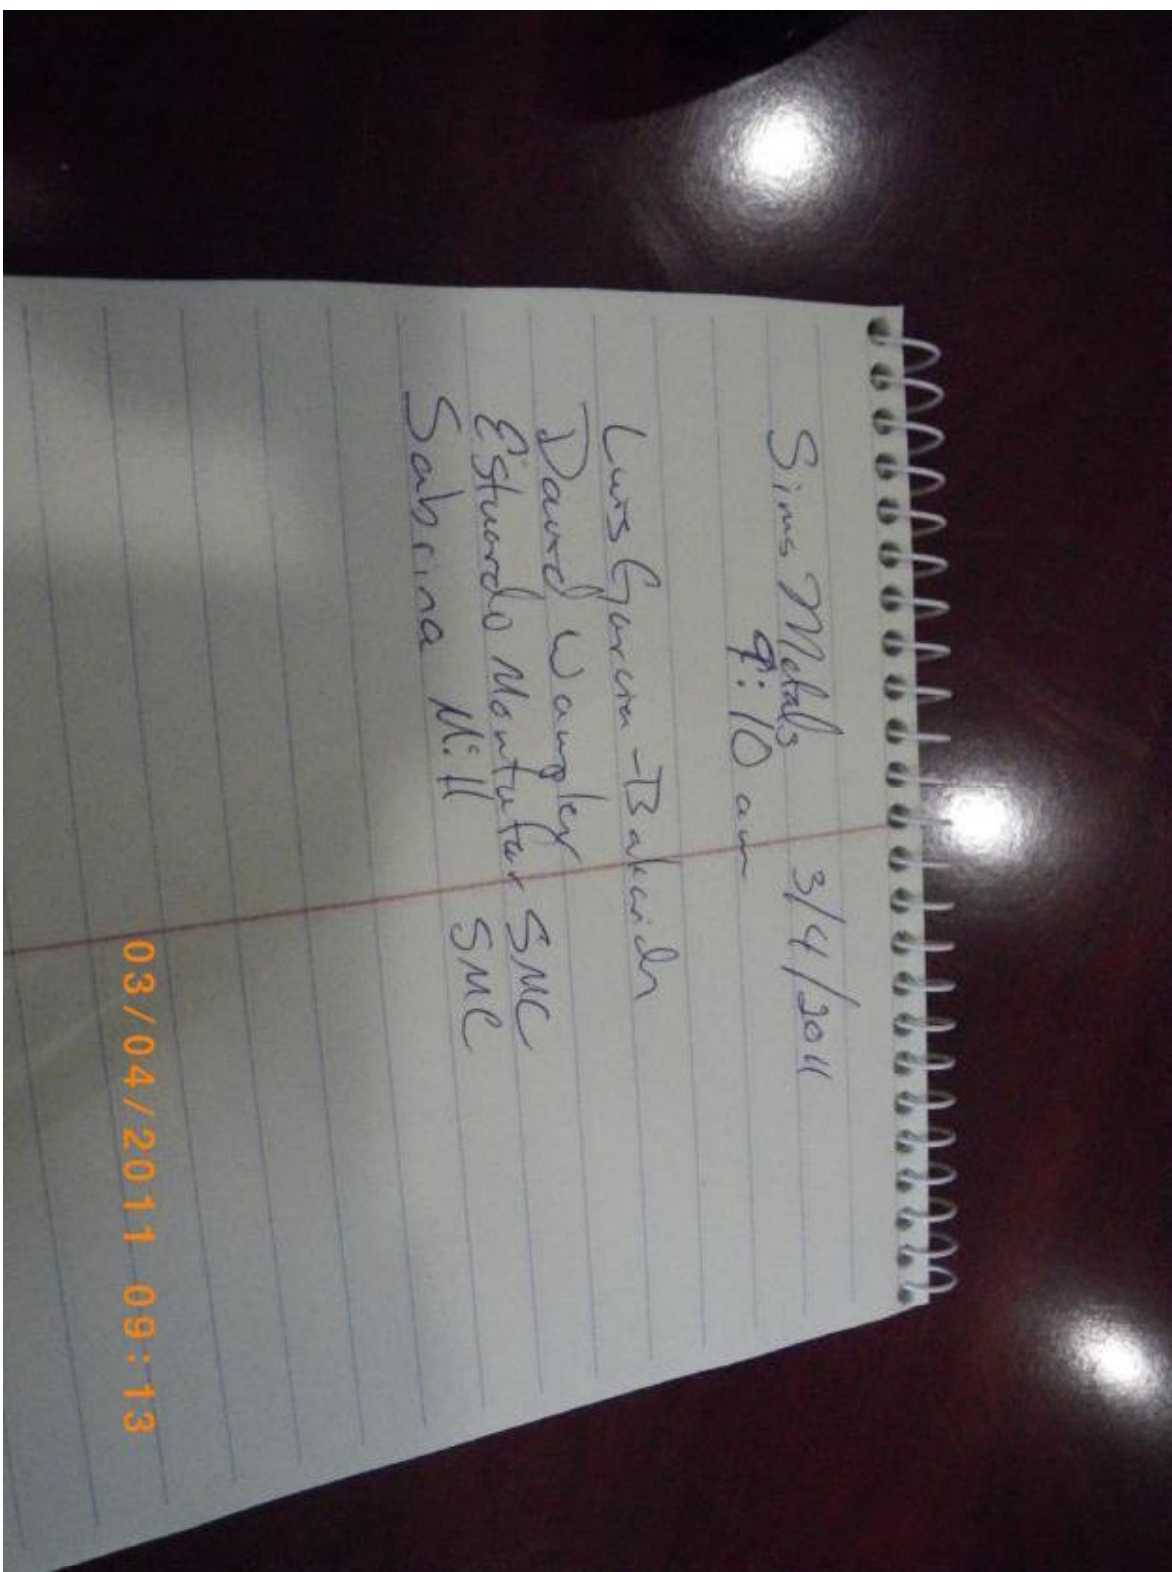 Sims Metals 3/4/2011
9:10 am
Luis Garcia-Bakarich
David Wampler
Estuardo Montufar SMC
Sabrina Mill SMC
03/04/2011 09:13